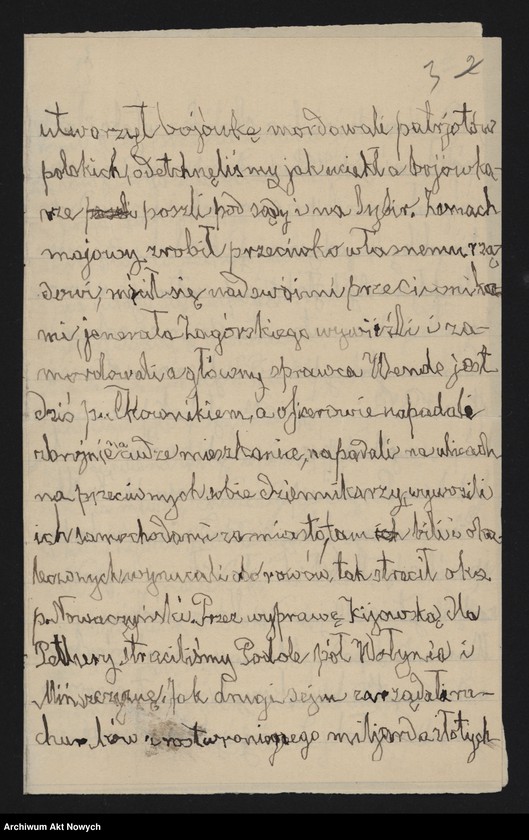 3 2
utworzył bojówkę mordowali patrjotów
polskich, odetchnęliśmy jak uciekł a bojówka-
rze poszli pod sądy i na Sybir. Zamach
majowy zrobił przeciwko własnemu rzą
dowi, mścił się nad swoimi przeciwnika
mi, jenerała Zagórskiego wywieźli i za-
mordowali a główny sprawca Wenda jest
dziś pułkownikiem, a oficerowie napadali
zbrojnie na cudze mieszkania, napadali na ulicach
na przeciwnych sobie dziennikarzy, wywozili
ich samochodami za miasto, tam bili i oka-
leczonych wyrzucali do rowów, tak stracił oko
p. Nowaczyński. Przez wyprawę Kijowską dla
Petlury straciliśmy Podole pół Wołynia i
Mińszczyznę. Jak drugi sejm zarządał ra-
chunków roztwonionego miljarda złotych
Archiwum Akt Nowych